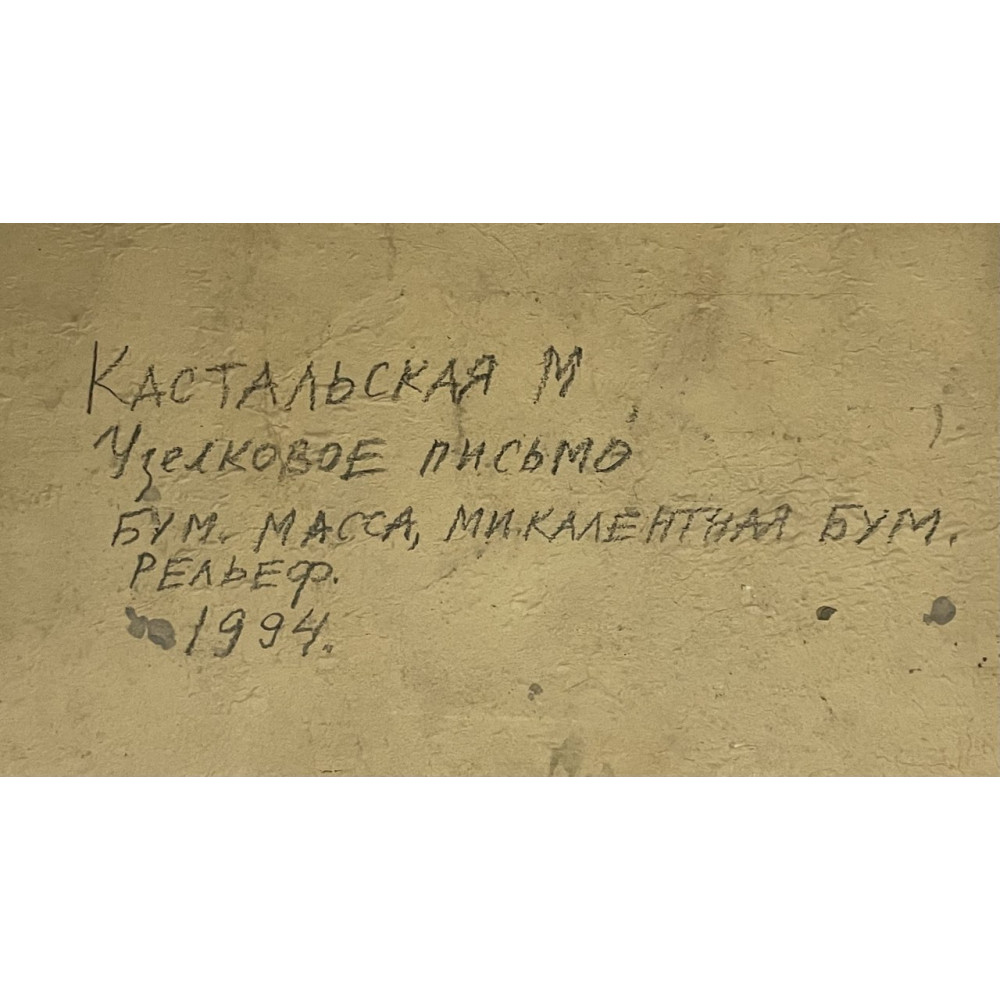 Кастальская М
Узелковое письмо
Бум. масса, микалентная бум.
рельеф.
1994.